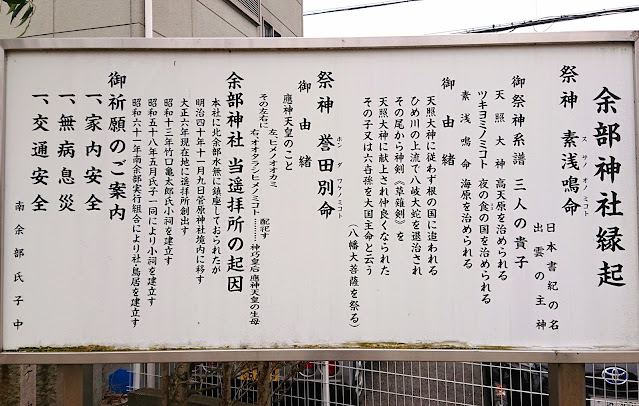 余部神社縁起
日本書紀の名
出雲の主神
祭神 素浅鳴命
スサノオノミコト
御祭神系譜 三人の貴子
天照大神 高天原を治められる
ツキヨミノミコト 夜の食の国を治められる
素浅鳴命 海原を治められる
御由緒
天照大神に従わず根の国に追われる
ひめ川の上流で八岐大蛇を退治され
その尾から神剣《草薙剣》を
天照大神に献上され仲良くなられた
その子又は六世孫を大国主命と云う
(八幡大菩薩を祭る)
祭神 誉田別命
ホンダワケノミコト
御由緒
應神天皇のこと
その左右に 左、ヒメノオオカミ 配祀す
右、オオタラシヒメノミコト……神巧皇后 應神天皇の生母
余部神社 当遥拝所の起因
本社に北余部水無に鎮座しておられたが
明治四十年十一月九日菅原神社境内に移す
大正六年現在地に遥拝所創出す
昭和十三年竹口亀太郎氏小祠を建立す
昭和五十八年五月氏子一同により小祠を建立す
昭和六十一年南余部実行組合により社・鳥居を建立す
御祈願のご案内
一、家内安全
一、無病息災
一、交通安全
南余部氏子中